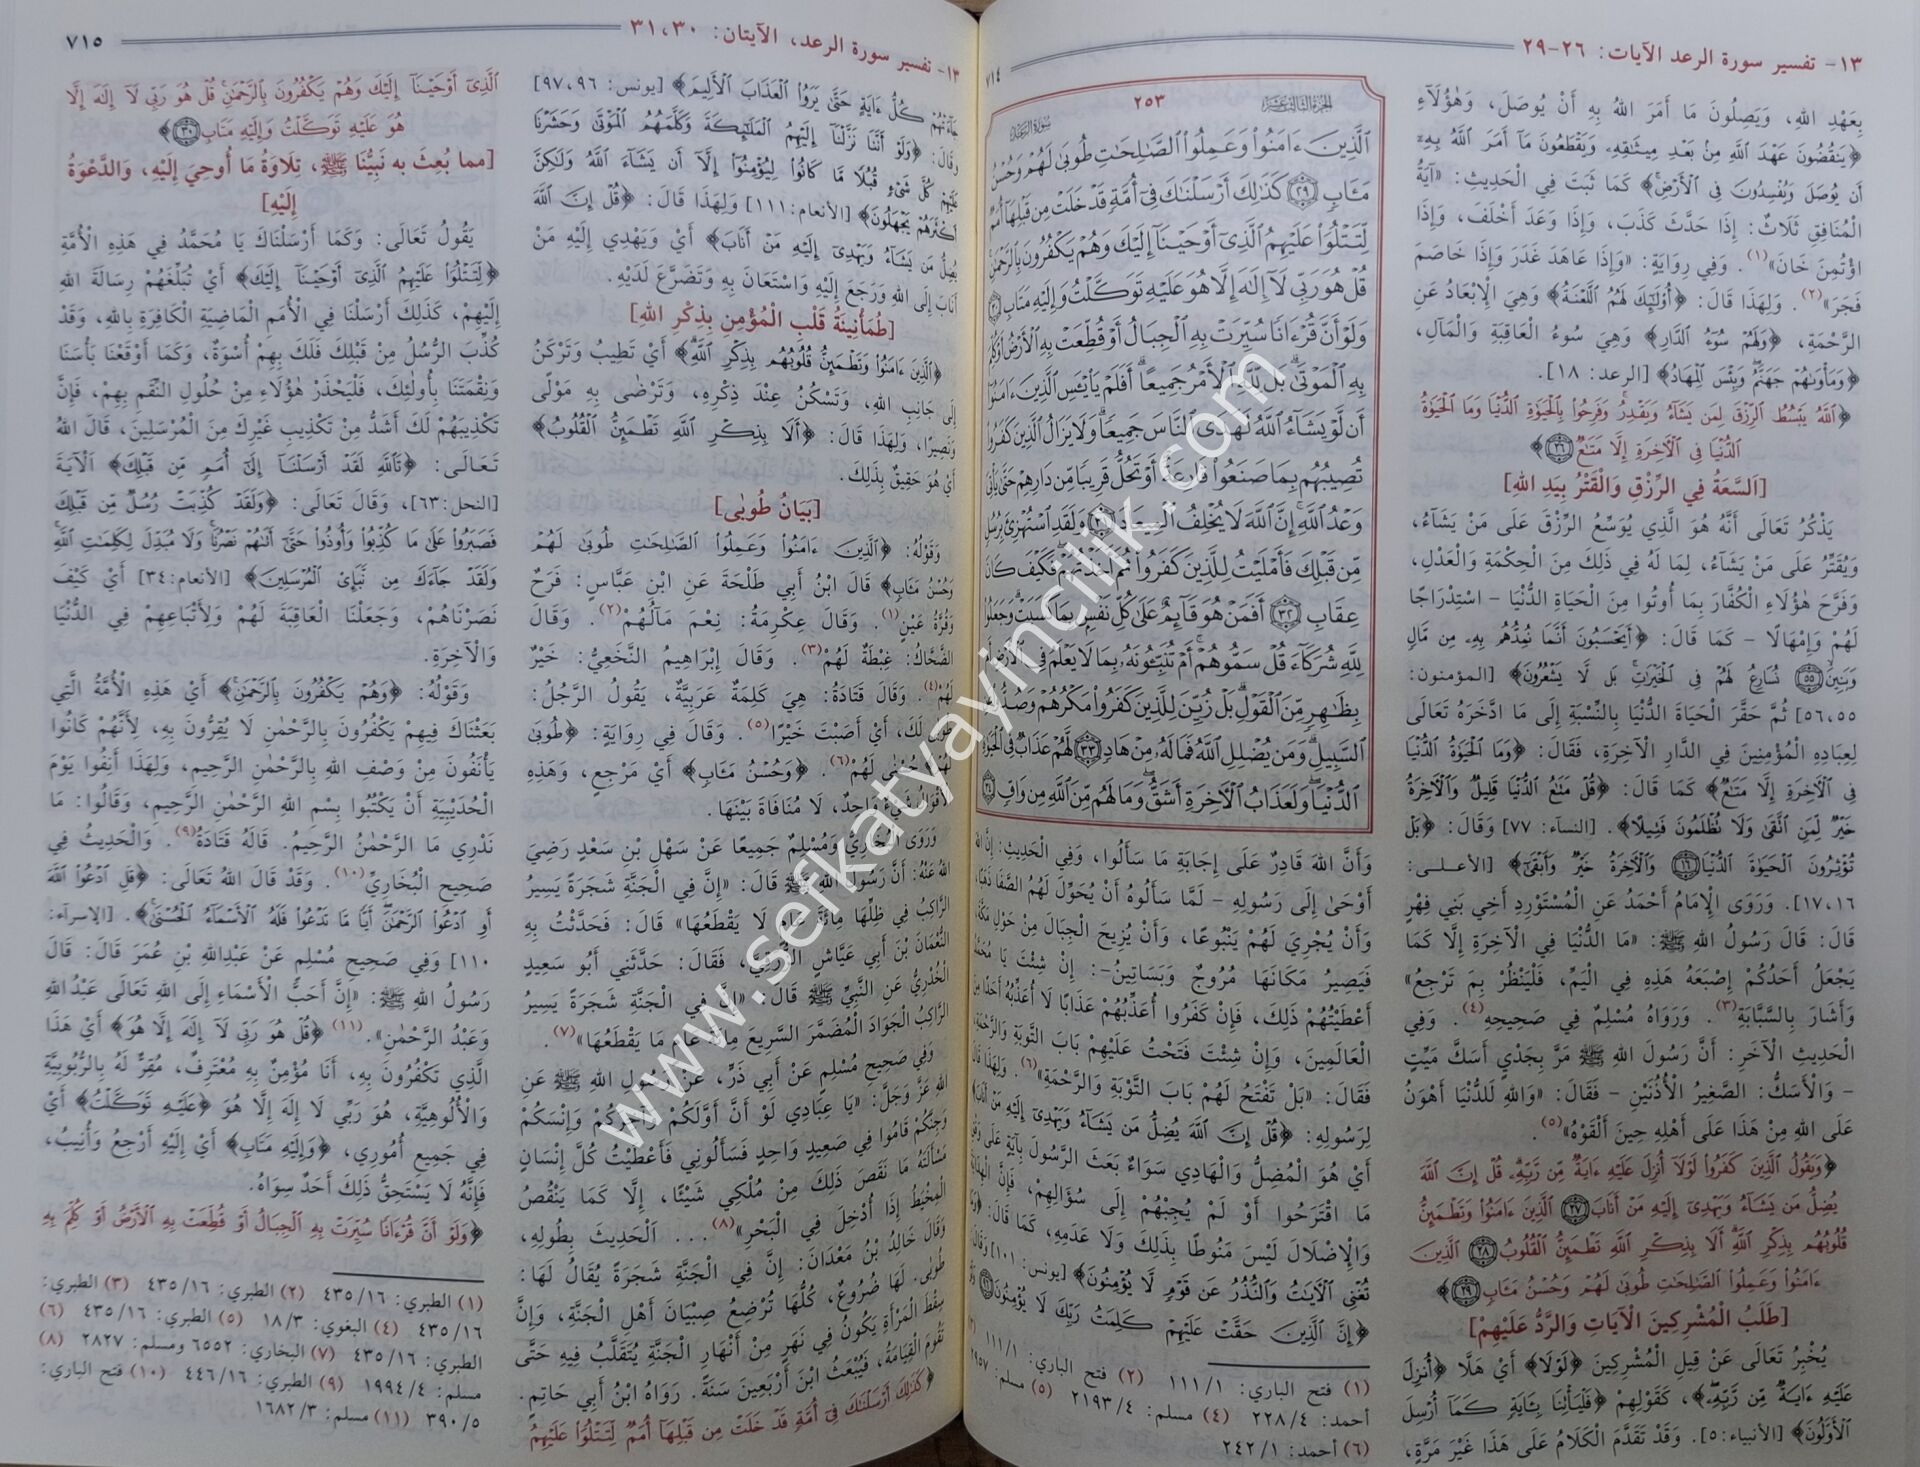 ١٣- تفسير سورة الرعد الآيات: ٢٦-٢٩
٧١٤
بِعَهْدِ اللهِ، وَيَصِلُونَ مَا أَمَرَ اللهُ بِهِ أَنْ يُوصَلَ، وَهٰؤُلَاءِ
﴿يَنقُضُونَ عَهْدَ اللَّهِ مِنْ بَعْدِ مِيثَاقِهِ وَيَقْطَعُونَ مَا أَمَرَ اللَّهُ بِهِ
أَن يُوصَلَ وَيُفْسِدُونَ فِى الْأَرْضِ﴾ كَمَا ثَبَتَ فِي الْحَدِيثِ: «آيَةُ
الْمُنَافِقِ ثَلَاثٌ: إِذَا حَدَّثَ كَذَبَ، وَإِذَا وَعَدَ أَخْلَفَ، وَإِذَا
اؤْتُمِنَ خَانَ»(١). وَفِي رِوَايَةٍ: «وَإِذَا عَاهَدَ غَدَرَ وَإِذَا خَاصَمَ
فَجَرَ»(٢) وَلِهَذَا قَالَ: ﴿أُوْلَٰٓئِكَ لَهُمُ اللَّعْنَةُ﴾ وَهِيَ الْإِبْعَادُ عَنِ
الرَّحْمَةِ، ﴿وَلَهُمْ سُوٓءُ الدَّارِ﴾ وَهِيَ سُوءُ الْعَاقِبَةِ وَالْمَآلِ،
﴿وَمَأْوَىٰهُمْ جَهَنَّمُ وَبِئْسَ الْمِهَادُ﴾ [الرعد: ١٨].
﴿اللَّهُ يَبْسُطُ الرِّزْقَ لِمَن يَشَآءُ وَيَقْدِرُ وَفَرِحُوا بِالْحَيَوٰةِ الدُّنْيَا وَمَا الْحَيَوٰةُ
الدُّنْيَا فِى الْآخِرَةِ إِلَّا مَتَٰعٌ ٢٦﴾
[اَلسَّعَةُ فِي الرِّزْقِ وَالْقَتْرُ بِيَدِ اللهِ]
يَذْكُرُ تَعَالَى أَنَّهُ هُوَ الَّذِي يُوَسِّعُ الرِّزْقَ عَلَى مَنْ يَشَاءُ،
وَيُقَتِّرُ عَلَى مَنْ يَشَاءُ، لِمَا لَهُ فِي ذَلِكَ مِنَ الْحِكْمَةِ وَالْعَدْلِ،
وَفَرَّحَ هٰؤُلَاءِ الْكُفَّارَ بِمَا أُوتُوا مِنَ الْحَيَاةِ الدُّنْيَا - اسْتِدْرَاجًا
لَهُمْ وَإِمْهَالًا - كَمَا قَالَ: ﴿أَيَحْسَبُونَ أَنَّمَا نُمِدُّهُم بِهِ مِن مَّالٍ
وَبَنِينَ ٥٥ نُسَارِعُ لَهُمْ فِى الْخَيْرَٰتِ بَل لَّا يَشْعُرُونَ﴾ [المؤمنون:
٥٥،٥٦] ثُمَّ حَقَّرَ الْحَيَاةَ الدُّنْيَا بِالنِّسْبَةِ إِلَى مَا ادَّخَرَهُ تَعَالَى
لِعِبَادِهِ الْمُؤْمِنِينَ فِي الدَّارِ الْآخِرَةِ، فَقَالَ: ﴿وَمَا الْحَيَوٰةُ الدُّنْيَا
فِى الْآخِرَةِ إِلَّا مَتَٰعٌ﴾ كَمَا قَالَ: ﴿قُلْ مَتَٰعُ الدُّنْيَا قَلِيلٌ وَالْآخِرَةُ
خَيْرٌ لِّمَنِ اتَّقَىٰ وَلَا تُظْلَمُونَ فَتِيلًا﴾. [النساء: ٧٧] وَقَالَ: ﴿بَلْ
تُؤْثِرُونَ الْحَيَوٰةَ الدُّنْيَا ١٦ وَالْآخِرَةُ خَيْرٌ وَأَبْقَىٰ﴾ [الأعلى:
١٦،١٧]. وَرَوَى الْإِمَامُ أَحْمَدُ عَنِ الْمُسْتَوْرِدِ أَخِي بَنِي فِهْرٍ
قَالَ: قَالَ رَسُولُ اللهِ ﷺ: «مَا الدُّنْيَا فِي الْآخِرَةِ إِلَّا كَمَا
يَجْعَلُ أَحَدُكُمْ إِصْبَعَهُ هَذِهِ فِي الْيَمِّ، فَلْيَنْظُرْ بِمَ تَرْجِعُ»
وَأَشَارَ بِالسَّبَّابَةِ(٣). وَرَوَاهُ مُسْلِمٌ فِي صَحِيحِهِ(٤). وَفِي
الْحَدِيثِ الْآخَرِ: أَنَّ رَسُولَ اللهِ ﷺ مَرَّ بِجَدْيٍ أَسَكَّ مَيِّتٍ
- وَالْأَسَكُّ: الصَّغِيرُ الْأُذُنَيْنِ - فَقَالَ: «وَاللهِ لَلدُّنْيَا أَهْوَنُ
عَلَى اللهِ مِنْ هَذَا عَلَى أَهْلِهِ حِينَ أَلْقَوْهُ»(٥).
﴿وَيَقُولُ الَّذِينَ كَفَرُوا لَوْلَآ أُنزِلَ عَلَيْهِ ءَايَةٌ مِّن رَّبِّهِ قُلْ إِنَّ اللَّهَ
يُضِلُّ مَن يَشَآءُ وَيَهْدِىٓ إِلَيْهِ مَنْ أَنَابَ ٢٧ الَّذِينَ ءَامَنُوا وَتَطْمَئِنُّ
قُلُوبُهُم بِذِكْرِ اللَّهِ أَلَا بِذِكْرِ اللَّهِ تَطْمَئِنُّ الْقُلُوبُ ٢٨ الَّذِينَ
ءَامَنُوا وَعَمِلُوا الصَّٰلِحَٰتِ طُوبَىٰ لَهُمْ وَحُسْنُ مَـَٔابٍ ٢٩﴾
[طَلَبُ الْمُشْرِكِينَ الْآيَاتِ وَالرَّدُّ عَلَيْهِمْ]
يُخْبِرُ تَعَالَى عَنْ قِيلِ الْمُشْرِكِينَ ﴿لَوْلَا﴾ أَيْ هَلَّا ﴿أُنزِلَ
عَلَيْهِ ءَايَةٌ مِّن رَّبِّهِ﴾، كَقَوْلِهِمْ ﴿فَلْيَأْتِنَا بِـَٔايَةٍ كَمَآ أُرْسِلَ
الْأَوَّلُونَ﴾ [الأنبياء:٥]. وَقَدْ تَقَدَّمَ الْكَلَامُ عَلَى هَذَا غَيْرَ مَرَّةٍ،
الجزء الثالث عشر
٢٥٣
سورة الرعد
الَّذِينَ ءَامَنُوا وَعَمِلُوا الصَّٰلِحَٰتِ طُوبَىٰ لَهُمْ وَحُسْنُ
مَـَٔابٍ ٢٩ كَذَٰلِكَ أَرْسَلْنَٰكَ فِىٓ أُمَّةٍ قَدْ خَلَتْ مِن قَبْلِهَآ أُمَمٌ
لِّتَتْلُوَا عَلَيْهِمُ الَّذِىٓ أَوْحَيْنَآ إِلَيْكَ وَهُمْ يَكْفُرُونَ بِالرَّحْمَٰنِ
قُلْ هُوَ رَبِّى لَآ إِلَٰهَ إِلَّا هُوَ عَلَيْهِ تَوَكَّلْتُ وَإِلَيْهِ مَتَابِ ٣٠
وَلَوْ أَنَّ قُرْءَانًا سُيِّرَتْ بِهِ الْجِبَالُ أَوْ قُطِّعَتْ بِهِ الْأَرْضُ أَوْ كُلِّمَ
بِهِ الْمَوْتَىٰ بَل لِّلَّهِ الْأَمْرُ جَمِيعًا أَفَلَمْ يَا۟يْـَٔسِ الَّذِينَ ءَامَنُوٓا
أَن لَّوْ يَشَآءُ اللَّهُ لَهَدَى النَّاسَ جَمِيعًا وَلَا يَزَالُ الَّذِينَ كَفَرُوا
تُصِيبُهُم بِمَا صَنَعُوا قَارِعَةٌ أَوْ تَحُلُّ قَرِيبًا مِّن دَارِهِمْ حَتَّىٰ يَأْتِىَ
وَعْدُ اللَّهِ إِنَّ اللَّهَ لَا يُخْلِفُ الْمِيعَادَ ٣١ وَلَقَدِ اسْتُهْزِئَ بِرُسُلٍ
مِّن قَبْلِكَ فَأَمْلَيْتُ لِلَّذِينَ كَفَرُوا ثُمَّ أَخَذْتُهُمْ فَكَيْفَ كَانَ
عِقَابِ ٣٢ أَفَمَنْ هُوَ قَآئِمٌ عَلَىٰ كُلِّ نَفْسٍ بِمَا كَسَبَتْ وَجَعَلُوا
لِلَّهِ شُرَكَآءَ قُلْ سَمُّوهُمْ أَمْ تُنَبِّـُٔونَهُ بِمَا لَا يَعْلَمُ فِى الْأَرْضِ أَم
بِظَٰهِرٍ مِّنَ الْقَوْلِ بَلْ زُيِّنَ لِلَّذِينَ كَفَرُوا مَكْرُهُمْ وَصُدُّوا عَنِ
السَّبِيلِ وَمَن يُضْلِلِ اللَّهُ فَمَا لَهُ مِنْ هَادٍ ٣٣ لَّهُمْ عَذَابٌ فِى الْحَيَوٰةِ
الدُّنْيَا وَلَعَذَابُ الْآخِرَةِ أَشَقُّ وَمَا لَهُم مِّنَ اللَّهِ مِن وَاقٍ ٣٤
وَأَنَّ اللهَ قَادِرٌ عَلَى إِجَابَةِ مَا سَأَلُوا، وَفِي الْحَدِيثِ: إِنَّ اللهَ
أَوْحَى إِلَى رَسُولِهِ - لَمَّا سَأَلُوهُ أَنْ يُحَوِّلَ لَهُمُ الصَّفَا ذَهَبًا،
وَأَنْ يُجْرِيَ لَهُمْ يَنْبُوعًا، وَأَنْ يُزِيحَ الْجِبَالَ مِنْ حَوْلِ مَكَّةَ
فَيَصِيرُ مَكَانَهَا مُرُوجٌ وَبَسَاتِينُ -: إِنْ شِئْتَ يَا مُحَمَّدُ
أَعْطَيْتُهُمْ ذَلِكَ، فَإِنْ كَفَرُوا أُعَذِّبُهُمْ عَذَابًا لَا أُعَذِّبُهُ أَحَدًا مِنَ
الْعَالَمِينَ، وَإِنْ شِئْتَ فَتَحْتُ عَلَيْهِمْ بَابَ التَّوْبَةِ وَالرَّحْمَةِ،
فَقَالَ: «بَلْ تَفْتَحُ لَهُمْ بَابَ التَّوْبَةِ وَالرَّحْمَةِ»(٦). وَلِهَذَا قَالَ
لِرَسُولِهِ: ﴿قُلْ إِنَّ اللَّهَ يُضِلُّ مَن يَشَآءُ وَيَهْدِىٓ إِلَيْهِ مَنْ أَنَابَ﴾
أَيْ هُوَ الْمُضِلُّ وَالْهَادِي سَوَاءٌ بَعَثَ الرَّسُولَ بِآيَةٍ عَلَى وَفْقِ
مَا اقْتَرَحُوا أَوْ لَمْ يُجِبْهُمْ إِلَى سُؤَالِهِمْ، فَإِنَّ الْهِدَايَةَ
وَالْإِضْلَالَ لَيْسَ مَنُوطًا بِذَلِكَ وَلَا عَدَمِهِ، كَمَا قَالَ: ﴿وَمَا
تُغْنِى الْآيَٰتُ وَالنُّذُرُ عَن قَوْمٍ لَّا يُؤْمِنُونَ﴾ [يونس:١٠١] وَقَالَ:
﴿إِنَّ الَّذِينَ حَقَّتْ عَلَيْهِمْ كَلِمَتُ رَبِّكَ لَا يُؤْمِنُونَ ٩٦
(١) فتح الباري: ١١١/١ (٢) فتح الباري: ١١١/١ (٣)
أحمد: ٢٢٨/٤ (٤) مسلم: ٢١٩٣/٤ (٥) مسلم: ٢٩٥٧
(٦) أحمد: ٢٤٢/١
١٣- تفسير سورة الرعد، الآيتان: ٣١،٣٠
٧١٥
جَآءَتْهُمْ كُلُّ ءَايَةٍ حَتَّىٰ يَرَوُا الْعَذَابَ الْأَلِيمَ﴾ [يونس: ٩٧،٩٦]
وقال: ﴿وَلَوْ أَنَّنَا نَزَّلْنَآ إِلَيْهِمُ الْمَلَٰٓئِكَةَ وَكَلَّمَهُمُ الْمَوْتَىٰ وَحَشَرْنَا
عَلَيْهِمْ كُلَّ شَىْءٍ قُبُلًا مَّا كَانُوا لِيُؤْمِنُوٓا إِلَّآ أَن يَشَآءَ اللَّهُ وَلَٰكِنَّ
أَكْثَرَهُمْ يَجْهَلُونَ﴾ [الأنعام:١١١] وَلِهَذَا قَالَ: ﴿قُلْ إِنَّ اللَّهَ
يُضِلُّ مَن يَشَآءُ وَيَهْدِىٓ إِلَيْهِ مَنْ أَنَابَ﴾ أَيْ وَيَهْدِي إِلَيْهِ مَنْ
أَنَابَ إِلَى اللهِ وَرَجَعَ إِلَيْهِ وَاسْتَعَانَ بِهِ وَتَضَرَّعَ لَدَيْهِ.
[طُمَأْنِينَةُ قَلْبِ الْمُؤْمِنِ بِذِكْرِ اللهِ]
﴿الَّذِينَ ءَامَنُوا وَتَطْمَئِنُّ قُلُوبُهُم بِذِكْرِ اللَّهِ﴾ أَيْ تَطِيبُ وَتَرْكَنُ
إِلَى جَانِبِ اللهِ، وَتَسْكُنُ عِنْدَ ذِكْرِهِ، وَتَرْضَى بِهِ مَوْلًى
وَنَصِيرًا، وَلِهَذَا قَالَ: ﴿أَلَا بِذِكْرِ اللَّهِ تَطْمَئِنُّ الْقُلُوبُ﴾
أَيْ هُوَ حَقِيقٌ بِذَلِكَ.
[بَيَانُ طُوبَى]
وَقَوْلُهُ: ﴿الَّذِينَ ءَامَنُوا وَعَمِلُوا الصَّٰلِحَٰتِ طُوبَىٰ لَهُمْ
وَحُسْنُ مَـَٔابٍ﴾ قَالَ ابْنُ أَبِي طَلْحَةَ عَنِ ابْنِ عَبَّاسٍ: فَرَحٌ
وَقُرَّةُ عَيْنٍ(١). وَقَالَ عِكْرِمَةُ: نِعْمَ مَالُهُمْ(٢). وَقَالَ
الضَّحَّاكُ: غِبْطَةٌ لَهُمْ(٣). وَقَالَ إِبْرَاهِيمُ النَّخَعِيُّ: خَيْرٌ
لَهُمْ(٤). وَقَالَ قَتَادَةُ: هِيَ كَلِمَةٌ عَرَبِيَّةٌ، يَقُولُ الرَّجُلُ:
طُوبَى لَكَ، أَيْ أَصَبْتَ خَيْرًا(٥). وَقَالَ فِي رِوَايَةٍ: ﴿طُوبَىٰ
لَهُمْ﴾ حُسْنَى لَهُمْ(٦). ﴿وَحُسْنُ مَـَٔابٍ﴾ أَيْ مَرْجِعٍ، وَهَذِهِ
الْأَقْوَالُ شَيْءٌ وَاحِدٌ، لَا مُنَافَاةَ بَيْنَهَا.
وَرَوَى الْبُخَارِيُّ وَمُسْلِمٌ جَمِيعًا عَنْ سَهْلِ بْنِ سَعْدٍ رَضِيَ
اللهُ عَنْهُ: أَنَّ رَسُولَ اللهِ ﷺ قَالَ: «إِنَّ فِي الْجَنَّةِ شَجَرَةً يَسِيرُ
الرَّاكِبُ فِي ظِلِّهَا مِائَةَ عَامٍ لَا يَقْطَعُهَا» قَالَ: فَحَدَّثْتُ بِهِ
النُّعْمَانَ بْنَ أَبِي عَيَّاشٍ الزُّرَقِيَّ، فَقَالَ: حَدَّثَنِي أَبُو سَعِيدٍ
الْخُدْرِيُّ عَنِ النَّبِيِّ ﷺ قَالَ: «إِنَّ فِي الْجَنَّةِ شَجَرَةً يَسِيرُ
الرَّاكِبُ الْجَوَادَ الْمُضَمَّرَ السَّرِيعَ مِائَةَ عَامٍ مَا يَقْطَعُهَا»(٧).
وَفِي صَحِيحِ مُسْلِمٍ عَنْ أَبِي ذَرٍّ، عَنْ رَسُولِ اللهِ ﷺ عَنِ
اللهِ عَزَّ وَجَلَّ: «يَا عِبَادِي لَوْ أَنَّ أَوَّلَكُمْ وَآخِرَكُمْ وَإِنْسَكُمْ
وَجِنَّكُمْ قَامُوا فِي صَعِيدٍ وَاحِدٍ فَسَأَلُونِي فَأَعْطَيْتُ كُلَّ إِنْسَانٍ
مَسْأَلَتَهُ مَا نَقَصَ ذَلِكَ مِنْ مُلْكِي شَيْئًا، إِلَّا كَمَا يَنْقُصُ
الْمِخْيَطُ إِذَا أُدْخِلَ فِي الْبَحْرِ»(٨) ... اَلْحَدِيثَ بِطُولِهِ،
وَقَالَ خَالِدُ بْنُ مَعْدَانَ: إِنَّ فِي الْجَنَّةِ شَجَرَةً يُقَالُ لَهَا:
طُوبَى. لَهَا ضُرُوعٌ، كُلُّهَا تُرْضِعُ صِبْيَانَ أَهْلِ الْجَنَّةِ، وَإِنَّ
سِقْطَ الْمَرْأَةِ يَكُونُ فِي نَهْرٍ مِنْ أَنْهَارِ الْجَنَّةِ يَتَقَلَّبُ فِيهِ حَتَّى
تَقُومَ الْقِيَامَةُ، فَيُبْعَثُ ابْنَ أَرْبَعِينَ سَنَةً. رَوَاهُ ابْنُ أَبِي حَاتِمٍ.
﴿كَذَٰلِكَ أَرْسَلْنَٰكَ فِىٓ أُمَّةٍ قَدْ خَلَتْ مِن قَبْلِهَآ أُمَمٌ لِّتَتْلُوَا عَلَيْهِمُ
الَّذِىٓ أَوْحَيْنَآ إِلَيْكَ وَهُمْ يَكْفُرُونَ بِالرَّحْمَٰنِ قُلْ هُوَ رَبِّى لَآ إِلَٰهَ إِلَّا
هُوَ عَلَيْهِ تَوَكَّلْتُ وَإِلَيْهِ مَتَابِ ٣٠﴾
[مما بُعِثَ به نَبِيُّنَا ﷺ، تِلَاوَةُ مَا أُوحِيَ إِلَيْهِ، وَالدَّعْوَةُ
إِلَيْهِ]
يَقُولُ تَعَالَى: وَكَمَا أَرْسَلْنَاكَ يَا مُحَمَّدُ فِي هَذِهِ الْأُمَّةِ
﴿لِّتَتْلُوَا عَلَيْهِمُ الَّذِىٓ أَوْحَيْنَآ إِلَيْكَ﴾ أَيْ تُبَلِّغُهُمْ رِسَالَةَ اللهِ
إِلَيْهِمْ، كَذَلِكَ أَرْسَلْنَا فِي الْأُمَمِ الْمَاضِيَةِ الْكَافِرَةِ بِاللهِ، وَقَدْ
كُذِّبَ الرُّسُلُ مِنْ قَبْلِكَ فَلَكَ بِهِمْ أُسْوَةٌ، وَكَمَا أَوْقَعْنَا بَأْسَنَا
وَنِقْمَتَنَا بِأُولَئِكَ، فَلْيَحْذَرْ هٰؤُلَاءِ مِنْ حُلُولِ النِّقَمِ بِهِمْ، فَإِنَّ
تَكْذِيبَهُمْ لَكَ أَشَدُّ مِنْ تَكْذِيبِ غَيْرِكَ مِنَ الْمُرْسَلِينَ، قَالَ اللهُ
تَعَالَى: ﴿تَاللَّهِ لَقَدْ أَرْسَلْنَآ إِلَىٰٓ أُمَمٍ مِّن قَبْلِكَ﴾ الْآيَةَ
[النحل:٦٣]، وَقَالَ تَعَالَى: ﴿وَلَقَدْ كُذِّبَتْ رُسُلٌ مِّن قَبْلِكَ
فَصَبَرُوا عَلَىٰ مَا كُذِّبُوا وَأُوذُوا حَتَّىٰٓ أَتَىٰهُمْ نَصْرُنَا وَلَا مُبَدِّلَ لِكَلِمَٰتِ اللَّهِ
وَلَقَدْ جَآءَكَ مِن نَّبَإِى الْمُرْسَلِينَ﴾ [الأنعام:٣٤] أَيْ كَيْفَ
نَصَرْنَاهُمْ، وَجَعَلْنَا الْعَاقِبَةَ لَهُمْ وَلِأَتْبَاعِهِمْ فِي الدُّنْيَا
وَالْآخِرَةِ.
وَقَوْلُهُ: ﴿وَهُمْ يَكْفُرُونَ بِالرَّحْمَٰنِ﴾ أَيْ هَذِهِ الْأُمَّةُ الَّتِي
بَعَثْنَاكَ فِيهِمْ يَكْفُرُونَ بِالرَّحْمٰنِ لَا يُقِرُّونَ بِهِ، لِأَنَّهُمْ كَانُوا
يَأْنَفُونَ مِنْ وَصْفِ اللهِ بِالرَّحْمٰنِ الرَّحِيمِ، وَلِهَذَا أَنِفُوا يَوْمَ
الْحُدَيْبِيَةِ أَنْ يَكْتُبُوا بِسْمِ اللهِ الرَّحْمٰنِ الرَّحِيمِ، وَقَالُوا: مَا
نَدْرِي مَا الرَّحْمٰنُ الرَّحِيمُ. قَالَهُ قَتَادَةُ(٩). وَالْحَدِيثُ فِي
صَحِيحِ الْبُخَارِيِّ(١٠). وَقَدْ قَالَ اللهُ تَعَالَى: ﴿قُلِ ادْعُوا اللَّهَ
أَوِ ادْعُوا الرَّحْمَٰنَ أَيًّا مَّا تَدْعُوا فَلَهُ الْأَسْمَآءُ الْحُسْنَىٰ﴾. [الإسرآء:
١١٠] وَفِي صَحِيحِ مُسْلِمٍ عَنْ عَبْدِاللهِ بْنِ عُمَرَ قَالَ: قَالَ
رَسُولُ اللهِ ﷺ: «إِنَّ أَحَبَّ الْأَسْمَاءِ إِلَى اللهِ تَعَالَى عَبْدُ اللهِ
وَعَبْدُ الرَّحْمٰنِ».(١١) ﴿قُلْ هُوَ رَبِّى لَآ إِلَٰهَ إِلَّا هُوَ﴾ أَيْ هَذَا
الَّذِي تَكْفُرُونَ بِهِ، أَنَا مُؤْمِنٌ بِهِ مُعْتَرِفٌ، مُقِرٌّ لَهُ بِالرُّبُوبِيَّةِ
وَالْأُلُوهِيَّةِ، هُوَ رَبِّي لَا إِلَهَ إِلَّا هُوَ ﴿عَلَيْهِ تَوَكَّلْتُ﴾ أَيْ
فِي جَمِيعِ أُمُورِي، ﴿وَإِلَيْهِ مَتَابِ﴾ أَيْ إِلَيْهِ أَرْجِعُ وَأُنِيبُ،
فَإِنَّهُ لَا يَسْتَحِقُّ ذَلِكَ أَحَدٌ سِوَاهُ.
﴿وَلَوْ أَنَّ قُرْءَانًا سُيِّرَتْ بِهِ الْجِبَالُ أَوْ قُطِّعَتْ بِهِ الْأَرْضُ أَوْ كُلِّمَ بِهِ
(١) الطبري: ٤٣٥/١٦ (٢) الطبري: ٤٣٥/١٦ (٣) الطبري:
٤٣٥/١٦ (٤) البغوي: ١٨/٣ (٥) الطبري: ٤٣٥/١٦ (٦)
الطبري: ٤٣٥/١٦ (٧) البخاري: ٦٥٥٢ ومسلم: ٢٨٢٧ (٨)
مسلم: ١٩٩٤/٤ (٩) الطبري: ٤٤٦/١٦ (١٠) فتح الباري:
٣٩٠/٥ (١١) مسلم: ١٦٨٢/٣
www.sefkatyayincilik.com